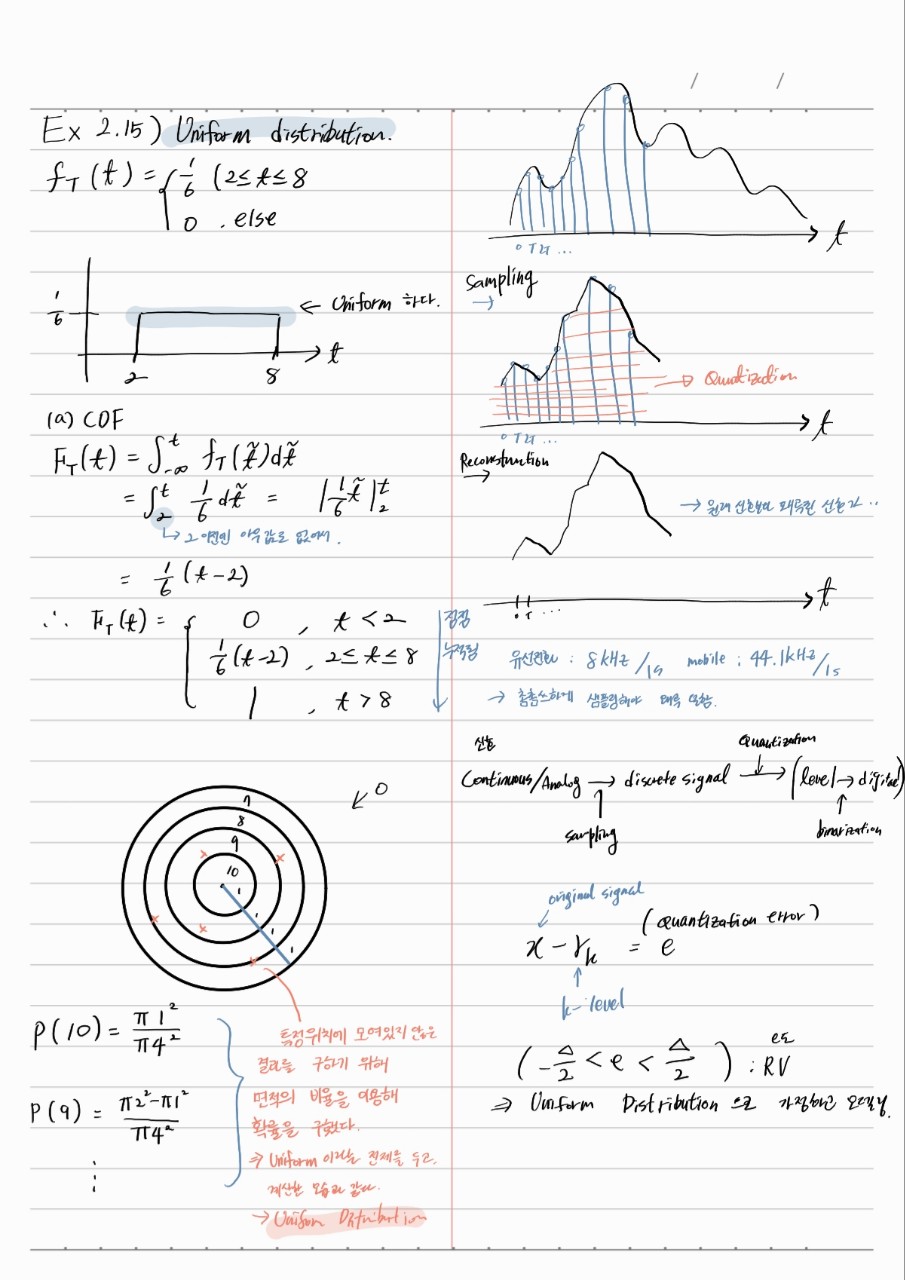 Ex 2.15) Uniform distribution.
f_T(t) = { 1/6 (2≤t≤8
0 . else
1/6
← Uniform 하다.
2 8 t
(a) CDF
F_T(t) = ∫_{-∞}^{t} f_T(t̃)dt̃
= ∫_2^t 1/6 dt̃ = |1/6 t̃|_2^t
↳ 2 이전엔 아무값도 없어서.
= 1/6 (t-2)
∴ F_T(t) = { 0 , t<2
1/6(t-2) , 2≤t≤8
1 , t>8
점점
누적됨
↙ 0
7
8
9
10
1
1
1
1
P(10) = π1²/π4²
P(9) = π2²-π1²/π4²
⋮
특정위치에 모여있지 않은
결과를 구하기 위해
면적의 비율을 이용해
확률을 구했다.
⇒ Uniform 이라는 전제를 두고
계산한 모습과 같다.
→ Uniform Distribution
/ /
t
0 T 2T ...
Sampling
→
→ Quantization
t
0 T 2T ...
Reconstruction
→
→ 원래 신호보다 신호가 ..
t
0 T ...
유선전화 : 8kHz/1s mobile : 44.1kHz/1s
→ 촘촘하게 샘플링해야
신호
Quantization
Continuous/Analog → discrete signal → (level → digital)
↑ sampling
↑ binarization
original signal
(quantization error)
x - r_k = e
↑
k-level
(-Δ/2 < e < Δ/2) : RV
e도
⇒ Uniform Distribution 으로 가정하고 모델링.